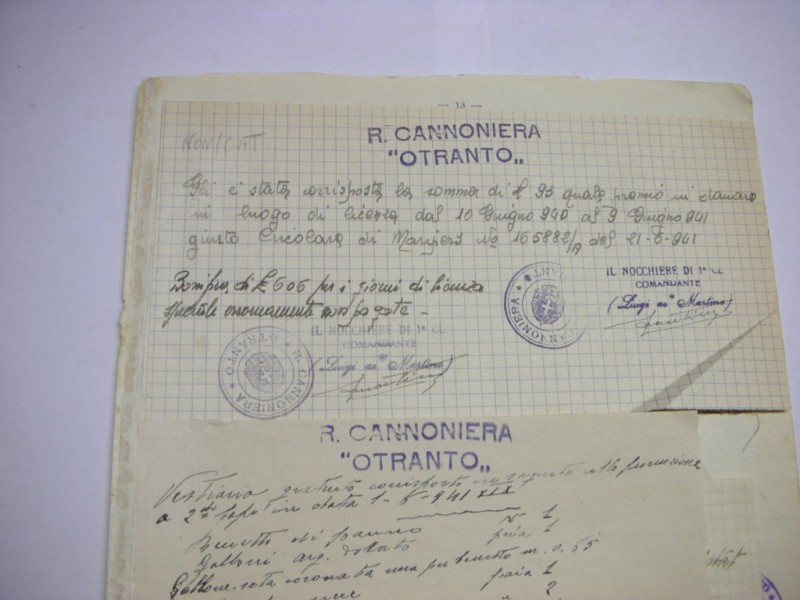 — 13 —
R. CANNONIERA
"OTRANTO„
Gli è stata corrisposta la somma di £ 93 quale premio in danaro
in luogo di licenza dal 10 Giugno 940 al 9 Giugno 941
giusta Circolare di Maripers No 165882/A del 21-6-941
di £ 606 per i giorni di licenza
speciale
IL NOCCHIERE DI 1ª CL.
COMANDANTE
(Luigi Martino)
R. CANNONIERA
OTRANTO
IL NOCCHIERE DI 1ª CL.
COMANDANTE
(Luigi Martino)
R. CANNONIERA
OTRANTO
R. CANNONIERA
"OTRANTO„
Vestiario gratuito corrisposto in seguito alla promozione
a 2° Capo in data 1-8-941 XIX
Berretti di panno No 1
Galloni dorato paia 1
Gallone seta per berretto m. 0,65
paia 1
2